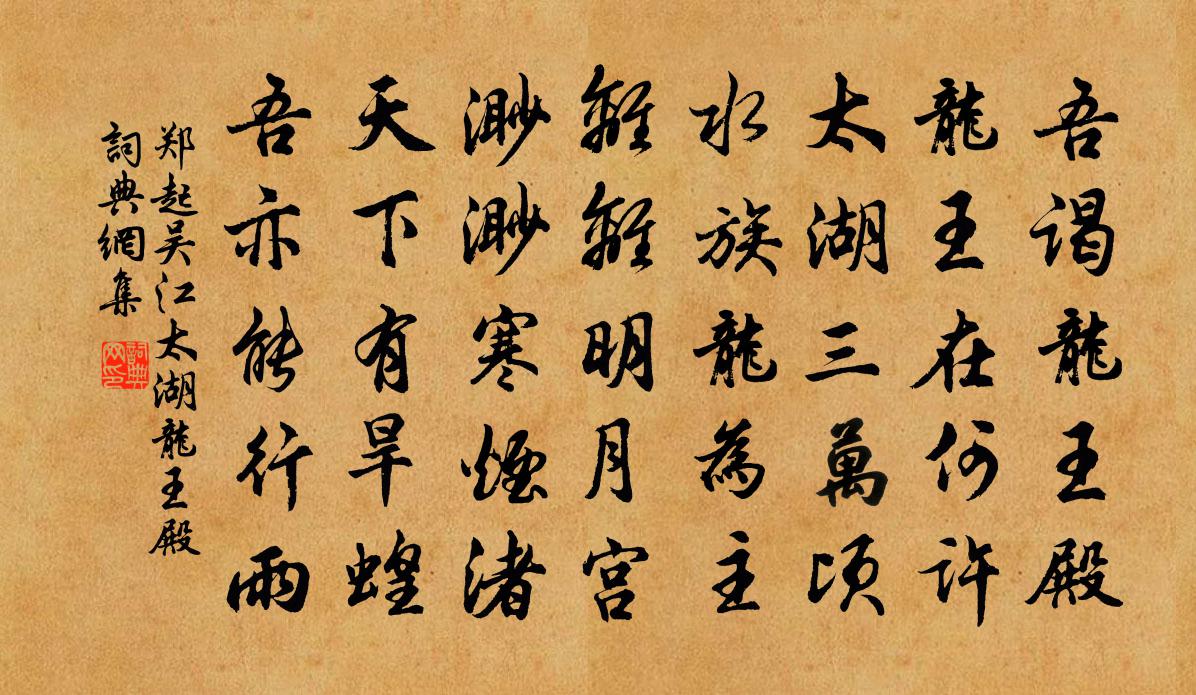 吾谒龍王殿
龍王在何许
太湖三萬顷
水族龍為主
離離明月宫
渺渺寒煙渚
天下有旱蝗
吾亦能行雨
郑起吴江太湖龍王殿
詞典網集
詞典網印